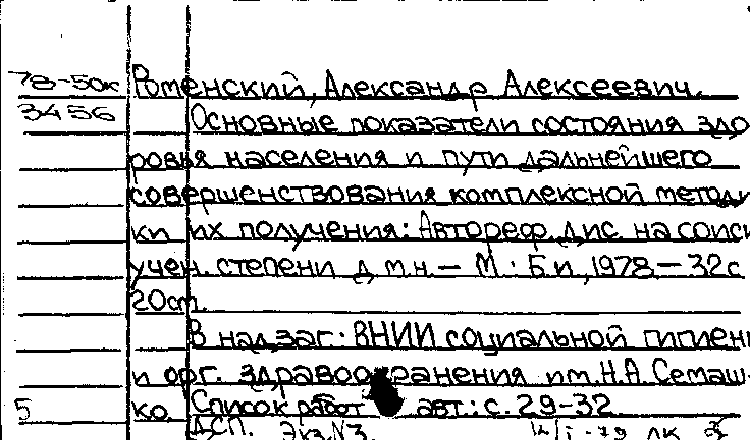 78-50к Роменский, Александр Алексеевич.
3456 Основные показатели состояния здо
ровья населения и пути дальнейшего
совершенствования комплексной методи
ки их получения: Автореф. дис. на соиск
учен. степени д.м.н. — М.: Б.и, 1978 — 32с
20см.
В надзаг: ВНИИ социальной гигиен
и орг. здравоохранения им. Н.А. Семаш-
5 ко. Список работ авт.: с. 29-32
ДСП. Экз.N3.